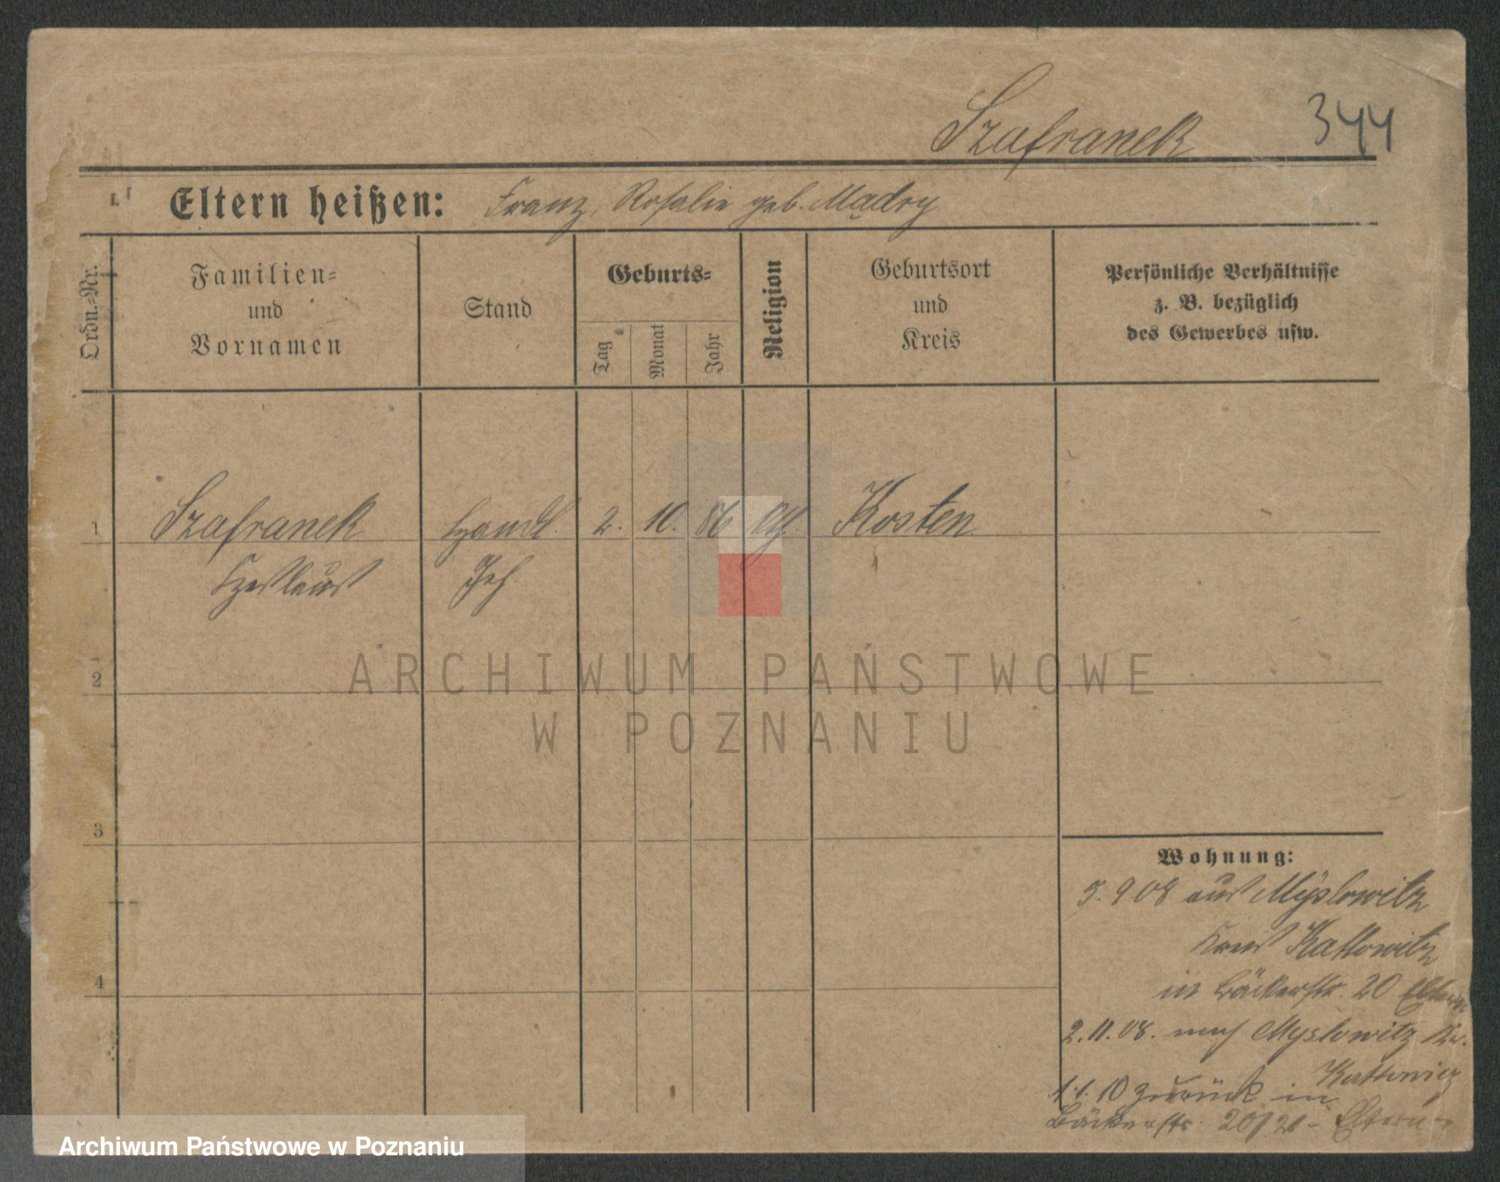 Szafranek 344
Eltern heißen: Franz, Rosalie geb. Mądry
Ordn.-Nr.
Familien-
und
Vornamen
Stand
Geburts-
Tag
Monat
Jahr
Religion
Geburtsort
und
Kreis
Persönliche Verhältnisse
z. B. bezüglich
des Gewerbes usw.
1 Szafranek Handl. 2. 10. 86 Kosten
Czeslaus Geh
2
3
4
Wohnung:
5. 9 08 aus Myslowitz
Kreis Kattowitz
in Bäckerstr. 20 Eltern
2. 11. 08. nach Myslowitz Kr.
Kattowitz
1. 1. 10 zurück in
Bäckerstr. 20/21 - Eltern -
ARCHIWUM PAŃSTWOWE
W POZNANIU
Archiwum Państwowe w Poznaniu